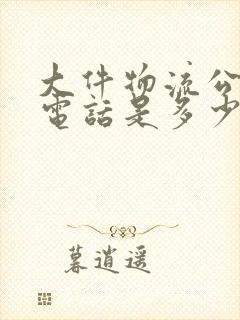 大件物流公
電話是多少
暮逍遥